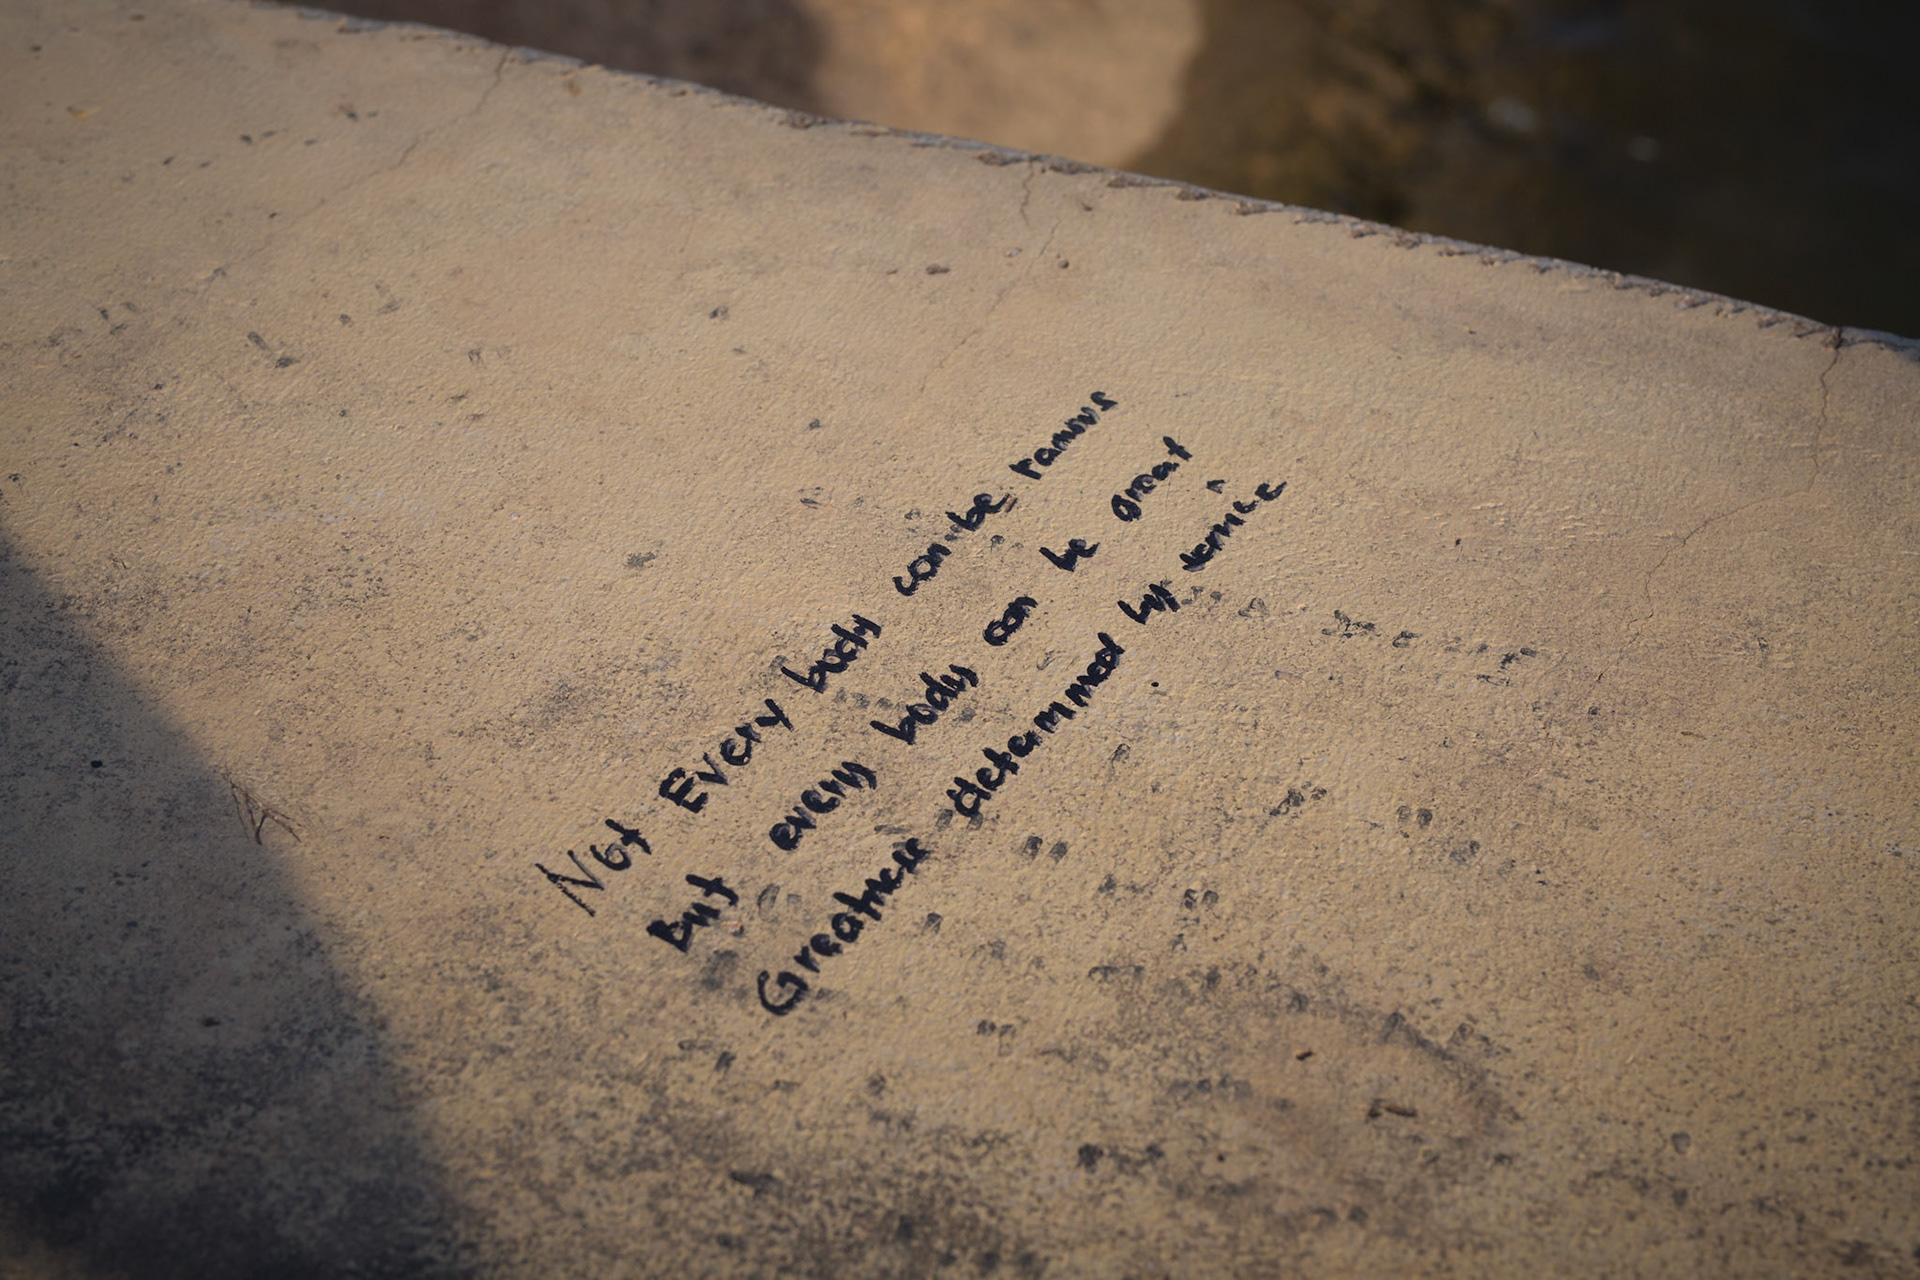 Not Every body can be famous
But every body can be great
Greatness determined by service